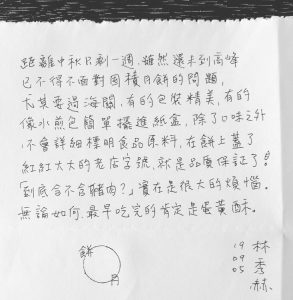 距離中秋只剩一週，雖然還未到高峰
已不得不面對囤積月餅的問題，
尤其要過海關，有的包裝精美，有的
像水煎包簡單擺進紙盒，除了口味之外
不會詳細標明食品原料，在餅上蓋了
紅紅大大的老店字號，就是品質保証了！
「到底含不含豬肉？」實在是很大的煩惱。
無論如何，最早吃完的肯定是蛋黃酥。
餅
月
林秀赫
19 09 05